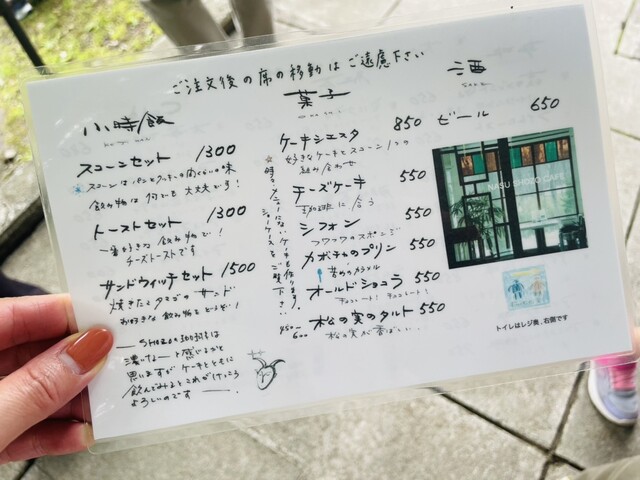 ご注文後の席の移動はご遠慮下さい
小時飯
スコーンセット 1300
スコーンはパンとクッキーの間くらいの味
飲み物は何でも大丈夫です!
トーストセット 1300
一番好きな飲み物で!
チーズトーストです
サンドウィッチセット 1500
焼きたてタマゴのサンド
お好きな飲み物をどうぞ!
SHOZOの珈琲は
濃いなーと感じるかと
思いますがケーキとともに
飲んでみるとこれがけっこう
よろしいのです
菓子
ケーキシエスタ 850
好きなケーキとスコーン1つの
組み合わせ
チーズケーキ 550
珈琲に合う
シフォン 550
フワフワのスポンジ
カボチャのプリン 550
苦めのカラメル
オールドショコラ 550
チョコレート! チョコレート!
松の実のタルト 550
松の実が香ばしい
酒
SAKE
ビール 650
NASU SHOZO CAFE
トイレはレジ奥、右側です